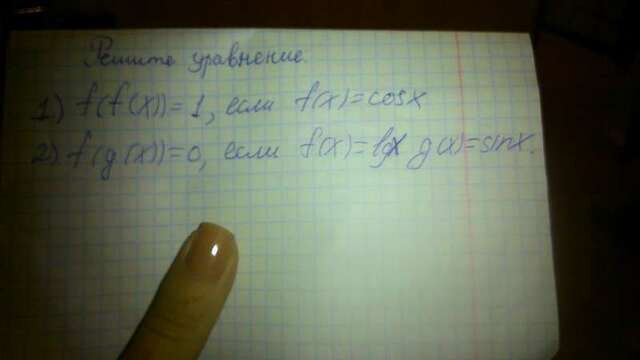 Решите уравнение.
1) f(f(x))=1, если f(x)=cosx
2) f(g(x))=0, если f(x)=lgx g(x)=sinx.